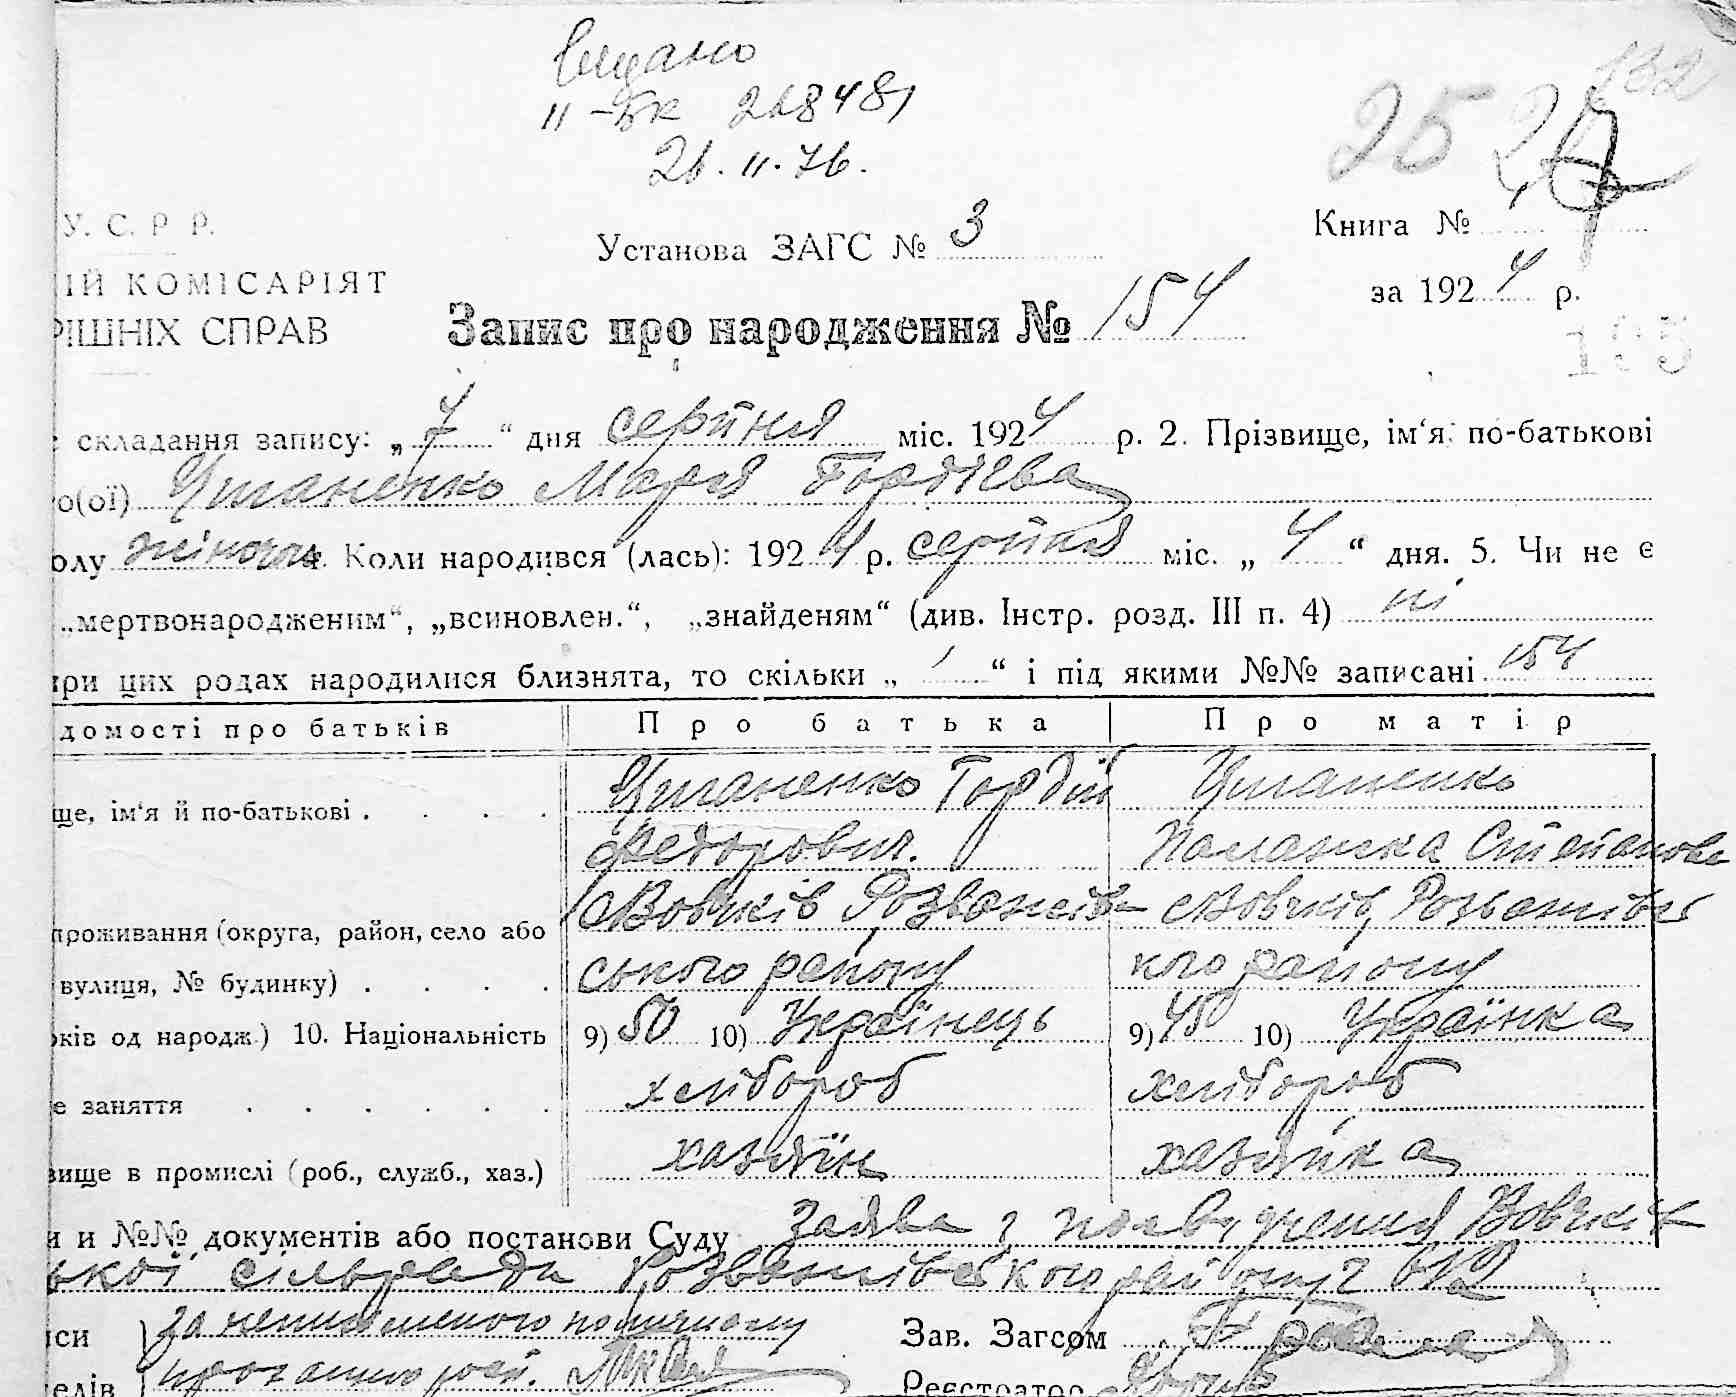 видано
II-БК 228481
26.II.76.
132
25
У. С. Р Р.
Установа ЗАГС № 3
Книга №
ІЙ КОМІСАРІЯТ
за 1924 р.
РІШНІХ СПРАВ
Запис про народження № 154
195
складання запису: „7“ дня серпня міс. 1924 р. 2. Прізвище, ім‘я, по-батькові
о(ої) Циганенко Марія Гордієва
олу жіноча. Коли народився (лась): 1924 р. серпня міс. „4“ дня. 5. Чи не є
„мертвонародженим“, „всиновлен.“, „знайденям“ (див. Інстр. розд. III п. 4) ні
при цих родах народилися близнята, то скільки „ “ і під якими №№ записані 154
домості про батьків Про батька Про матір
ще, ім‘я й по-батькові . . . . Циганенко Гордій Циганенко
Федорович. Палажка Степанов
Вовчків Розважів- Вовчків, Розважівсь
проживання (округа, район, село або
вулиця, № будинку) . . . . ського району кого району
ків од народж.) 10. Національність 9) 50 10) Українець 9) 45 10) Українка
е заняття . . . . . . хлібороб хлібороб
вище в промислі (роб., служб., хаз.) хазяїн хазяйка
и и №№ документів або постанови Суду Заява і Вовчків
ської сільради Розважівського району
си за неписьменого Зав. Загсом
елів Реєстратор